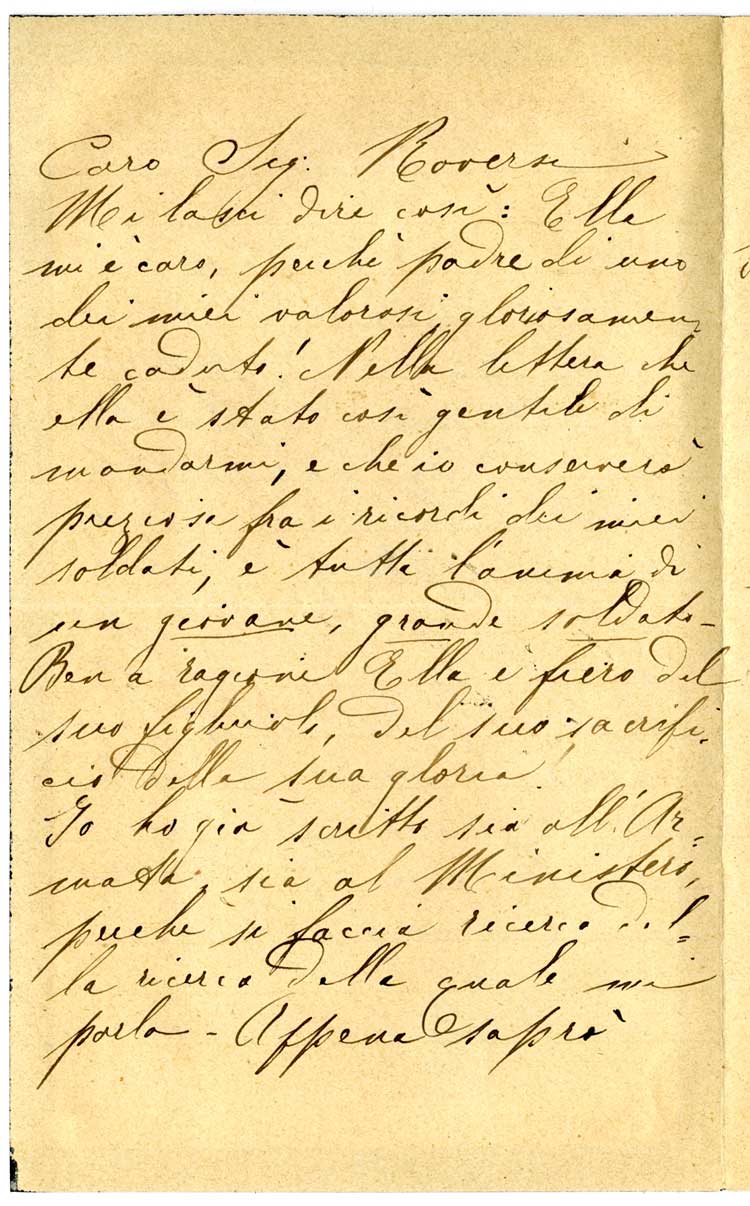 Caro Sig. Roversi
Mi lasci dire così: Ella
mi è caro, perchè padre di uno
dei miei valorosi gloriosamen-
te caduto! Nella lettera che
ella è stato così gentile di
mandarmi, e che io conserverò
preziosa fra i ricordi dei miei
soldati, è tutta l'anima di
un giovane, grande soldato -
Ben a ragione Ella è fiero del
suo figliuolo, del suo sacrifi-
cio della sua gloria!
Io ho già scritto sia all'Ar=
mata, sia al Ministero,
perchè si faccia ricerca del=
la ricerca della quale mi
parla - Appena saprò